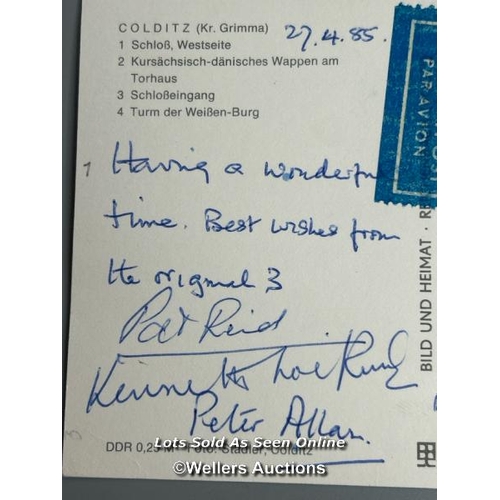 COLDITZ (Kr. Grimma)
27.4.85.
1 Schloß, Westseite
2 Kursächsisch-dänisches Wappen am
Torhaus
3 Schloßeingang
4 Turm der Weißen-Burg
PAR AVION
Having a wonderfu
time. Best wishes from
the original 3
Pat Reid
Kenneth Lockwood
Peter Allan.
BILD UND HEIMAT
DDR 0,25 M Foto: Stadler, Colditz
Lots Sold As Seen Online
©Wellers Auctions